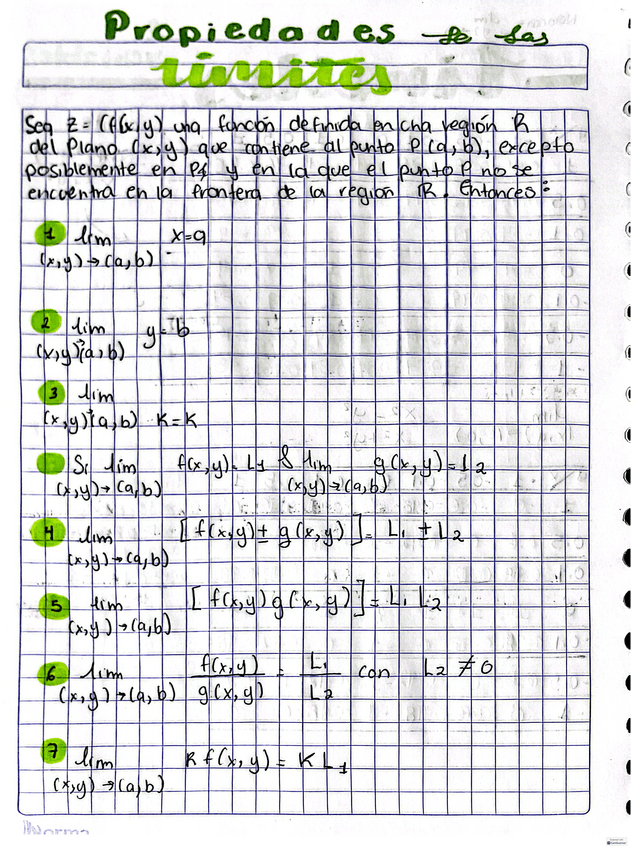 Propiedades de las
límites
Sea z = (f(x,y) una función definida en cha región R
del plano (x,y) que contiene al punto P(a,b), excepto
posiblemente en P, y en la que el punto P no se
encuentra en la frontera de la región R. Entonces:
1 lim x=a
(x,y)→(a,b)
2 lim y=b
(x,y)→(a,b)
3 lim
(x,y)→(a,b) K=K
Si lim f(x,y)=L1 & lim g(x,y)=L2
(x,y)→(a,b) (x,y)→(a,b)
4 lim [f(x,y)± g(x,y)]= L1 ± L2
(x,y)→(a,b)
5 lim [f(x,y)g(x,y)]= L1 L2
(x,y)→(a,b)
6 lim f(x,y)/g(x,y) = L1/L2 con L2 ≠0
(x,y)→(a,b)
7 lim K f(x,y)= K L1
(x,y)→(a,b)
Norma